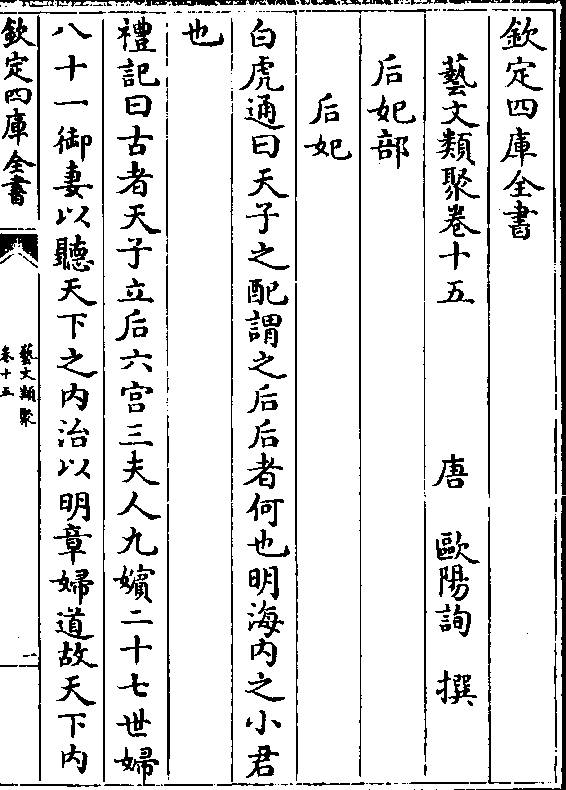 欽定四庫全書
藝文類聚卷十五　唐　歐陽詢　撰
后妃部
后妃
白虎通曰天子之配謂之后后者何也明海内之小君
也
禮記曰古者天子立后六宫三夫人九嬪二十七世婦
八十一御妻以聽天下之内治以明章婦道故天下内
欽定四庫全書
藝文類聚
卷十五
一